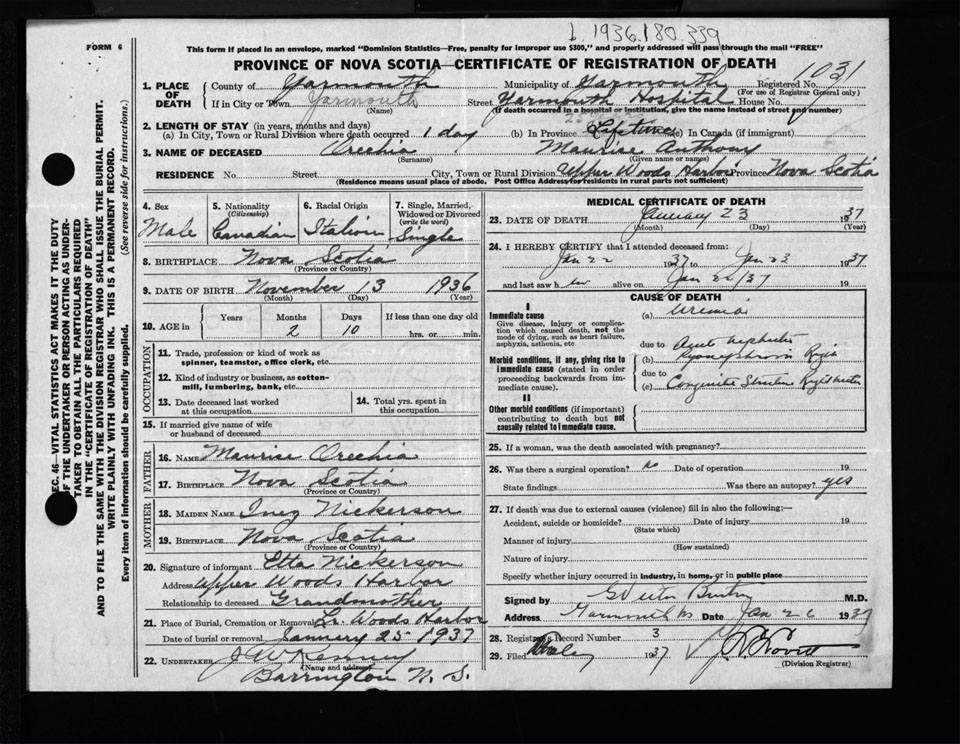 b. 1936.180.339
FORM 6
This form if placed in an envelope, marked "Dominion Statistics—Free, penalty for improper use $300," and properly addressed will pass through the mail "FREE"
PROVINCE OF NOVA SCOTIA—CERTIFICATE OF REGISTRATION OF DEATH
1031
1. PLACE OF DEATH
County of Yarmouth Municipality of Yarmouth Registered No.
(For use of Registrar General only)
If in City or Town Yarmouth Street Yarmouth Hospital House No.
(Name) (If death occurred in a hospital or institution, give the name instead of street and number)
2. LENGTH OF STAY (in years, months and days)
(a) In City, Town or Rural Division where death occurred 1 day (b) In Province Lifetime (c) In Canada (if immigrant)
3. NAME OF DECEASED Orechia Maurise Anthony
(Surname) (Given name or names)
RESIDENCE No. Street City, Town or Rural Division Upper Woods Harbor Province Nova Scotia
(Residence means usual place of abode. Post Office Address for residents in rural parts not sufficient)
4. Sex Male
5. Nationality (Citizenship) Canadian
6. Racial Origin Italian
7. Single, Married, Widowed or Divorced (write the word) Single
8. BIRTHPLACE Nova Scotia
(Province or Country)
9. DATE OF BIRTH November 13 1936
(Month) (Day) (Year)
10. AGE in Years Months 2 Days 10 If less than one day old hrs. or min.
OCCUPATION
11. Trade, profession or kind of work as spinner, teamster, office clerk, etc.
12. Kind of industry or business, as cotton-mill, lumbering, bank, etc.
13. Date deceased last worked at this occupation
14. Total yrs. spent in this occupation
15. If married give name of wife or husband of deceased
FATHER
16. NAME Maurise Orechia
17. BIRTHPLACE Nova Scotia
(Province or Country)
MOTHER
18. MAIDEN NAME Inez Nickerson
19. BIRTHPLACE Nova Scotia
(Province or Country)
20. Signature of informant Etta Nickerson
Address Upper Woods Harbor
Relationship to deceased Grandmother
21. Place of Burial, Cremation or Removal Lr. Woods Harbor
Date of burial or removal January 25 1937
22. UNDERTAKER J W Kenney
(Name and address)
Barrington N. S.
MEDICAL CERTIFICATE OF DEATH
23. DATE OF DEATH January 23 1937
(Month) (Day) (Year)
24. I HEREBY CERTIFY that I attended deceased from:
Jan 22 1937 to Jan 23 1937
and last saw h alive on Jan 22/37 19
CAUSE OF DEATH
I
Immediate cause
Give disease, injury or complication which caused death, not the mode of dying, such as heart failure, asphyxia, asthenia, etc
(a) Uremia
due to
Morbid conditions, if any, giving rise to immediate cause (stated in order proceeding backwards from immediate cause).
(b) Acute Nephritis
due to
(c) Congenital Stricture Right ureter
II
Other morbid conditions (if important) contributing to death but not causally related to immediate cause.
25. If a woman, was the death associated with pregnancy?
26. Was there a surgical operation? no Date of operation 19
State findings Was there an autopsy? yes
27. If death was due to external causes (violence) fill in also the following:—
Accident, suicide or homicide? Date of injury 19
(State which)
Manner of injury
(How sustained)
Nature of injury
Specify whether injury occurred in industry, in home, or in public place
Signed by M.D.
Address Yarmouth Date Jan 26 1937
28. Registrar's Record Number 3
29. Filed 1937
(Division Registrar)
EC. 46—VITAL STATISTICS ACT MAKES IT THE DUTY
OF THE UNDERTAKER OR PERSON ACTING AS UNDER-
TAKER TO OBTAIN ALL THE PARTICULARS REQUIRED
IN THE "CERTIFICATE OF REGISTRATION OF DEATH"
AND TO FILE THE SAME WITH THE DIVISION REGISTRAR WHO SHALL ISSUE THE BURIAL PERMIT.
WRITE PLAINLY WITH UNFADING INK. THIS IS A PERMANENT RECORD.
Every item of information should be carefully supplied. (See reverse side for instructions.)